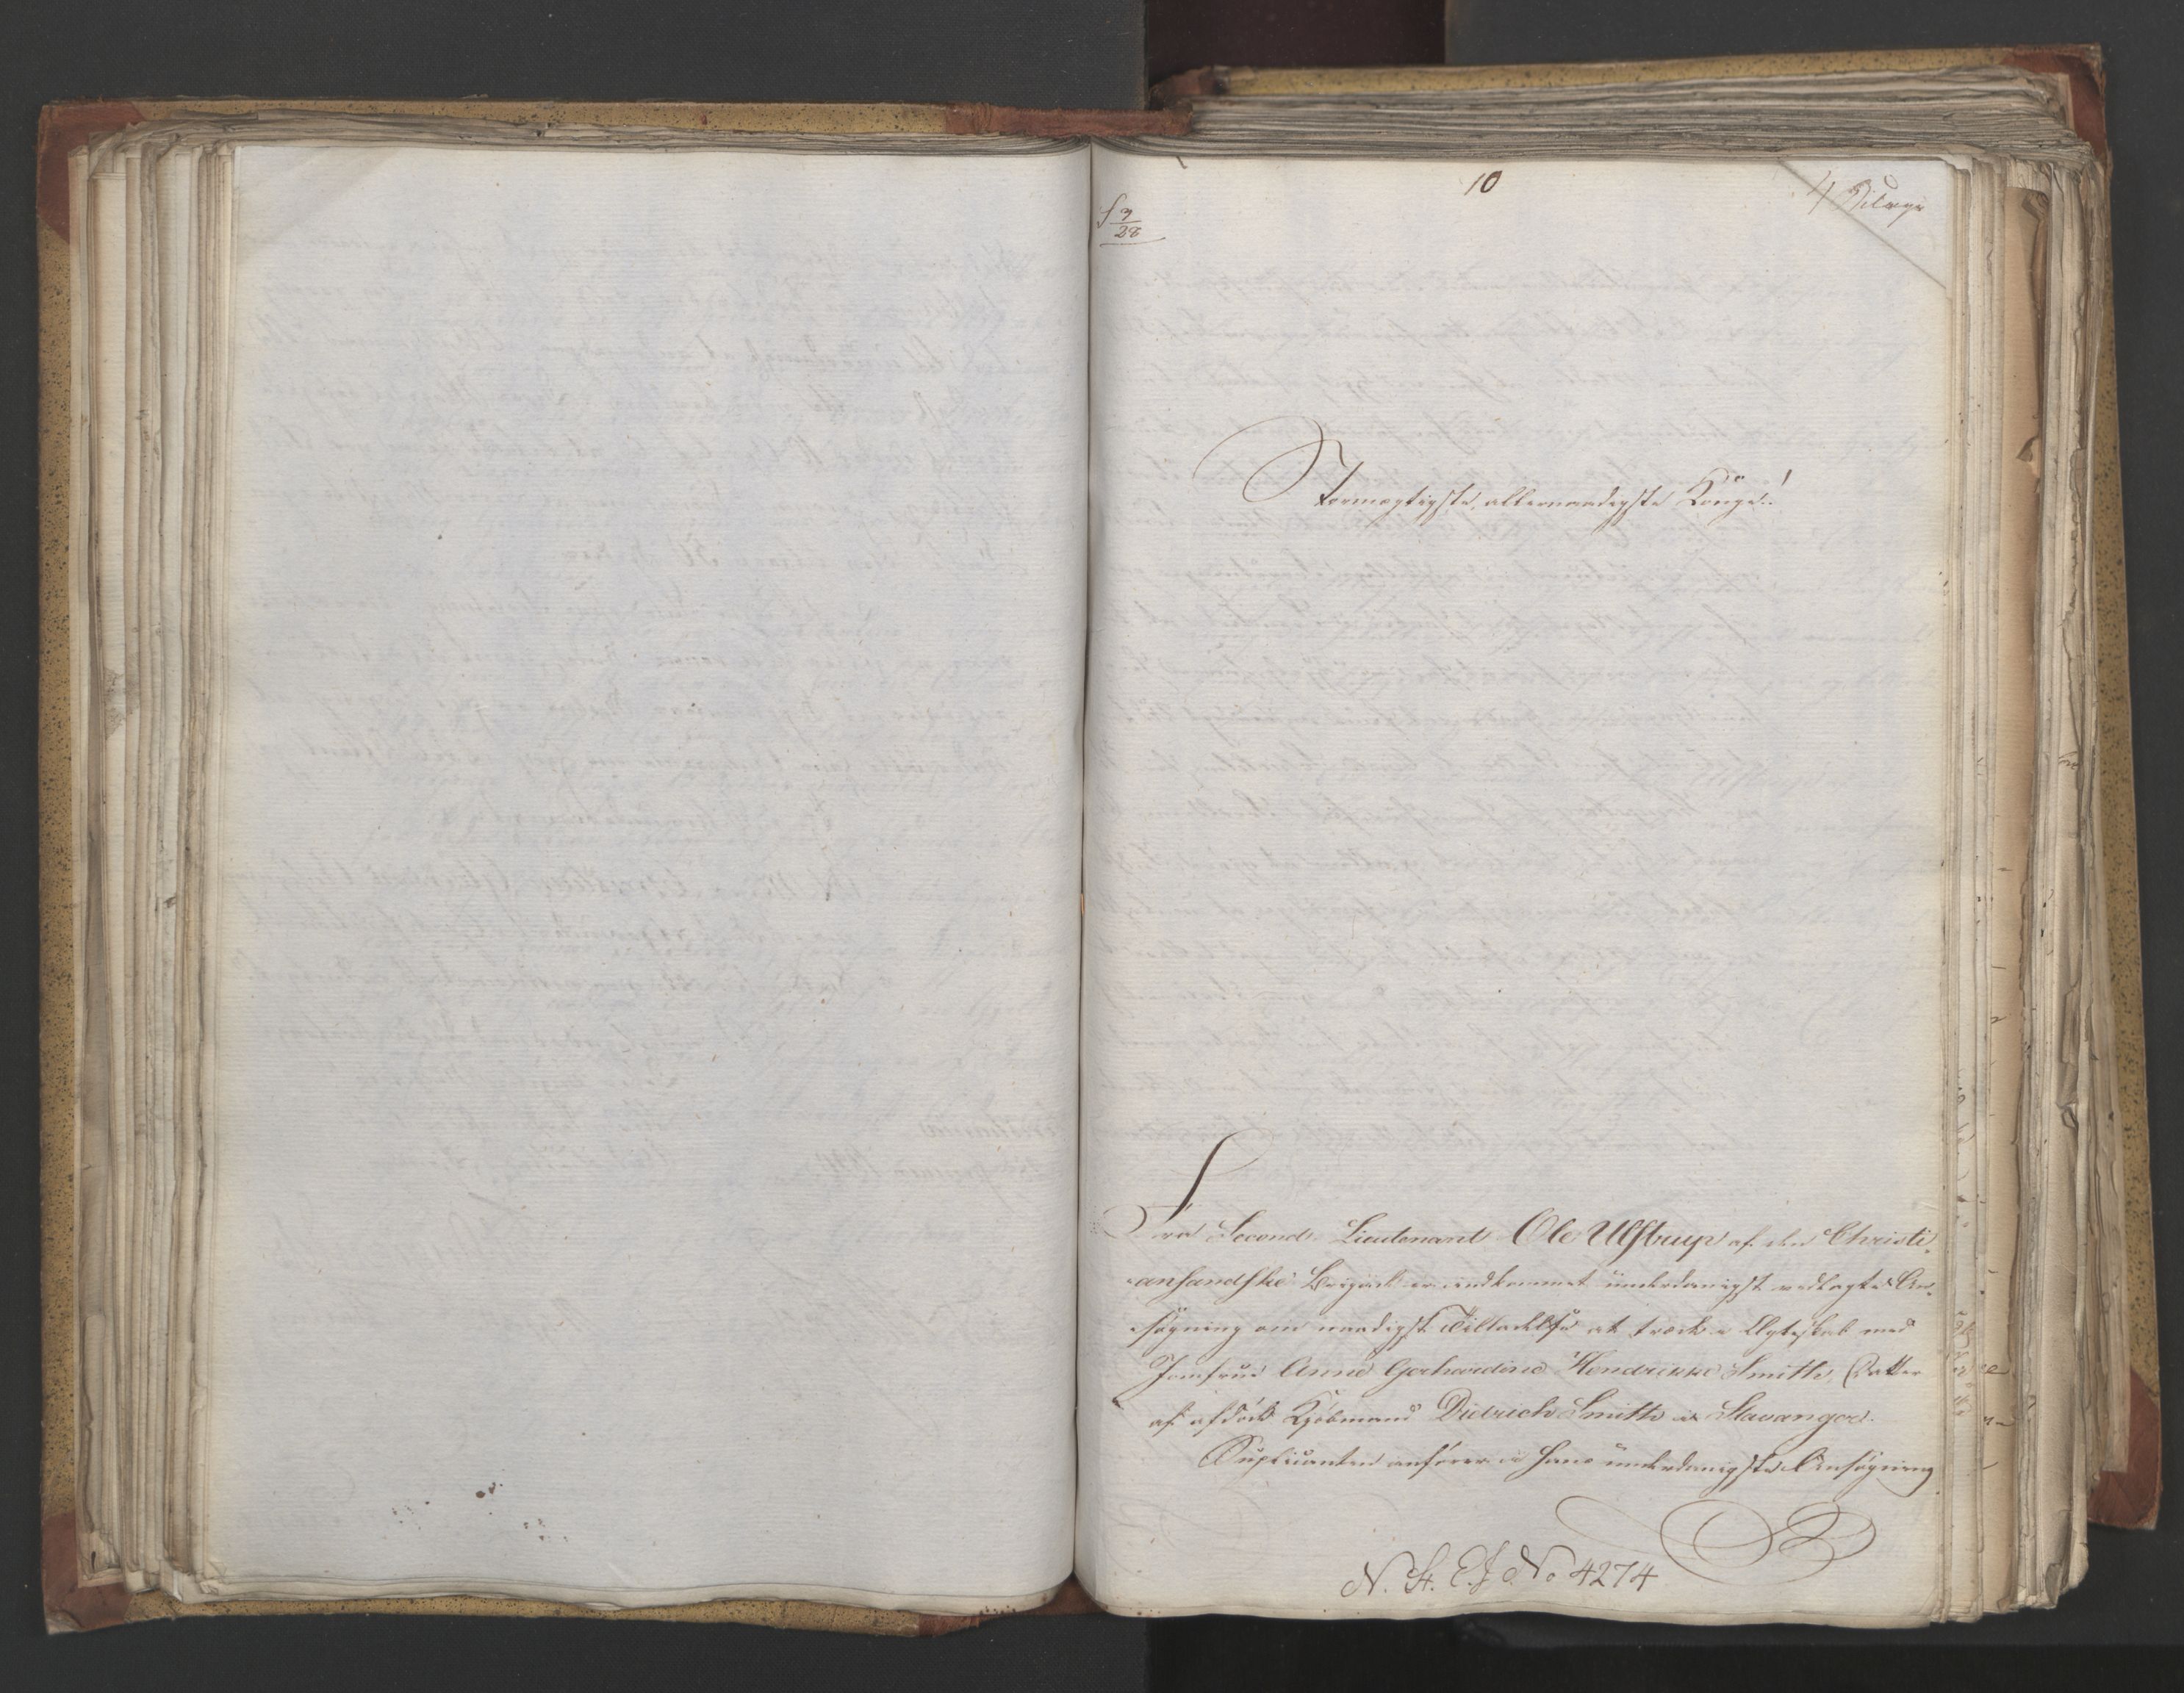 10
4 Bilage
S 3/28
Stormægtigste, allernaadigste Konge!
Fra Second Lieutenant Ole Ulstrup af den Christi-
-ansandske Brigade er indkommet underdanigst vedlagte An-
-søgning om naadigst Tilladelse at træde i Ægteskab med
Jomfrue Anne Gerhardine Hendrikke Smith, Datter
af afdøde Kjøbmand Didrich Smith i Stavanger.
Suplicanten anfører i hans underdanigste Ansøgning
N. St. E. J. No 4274